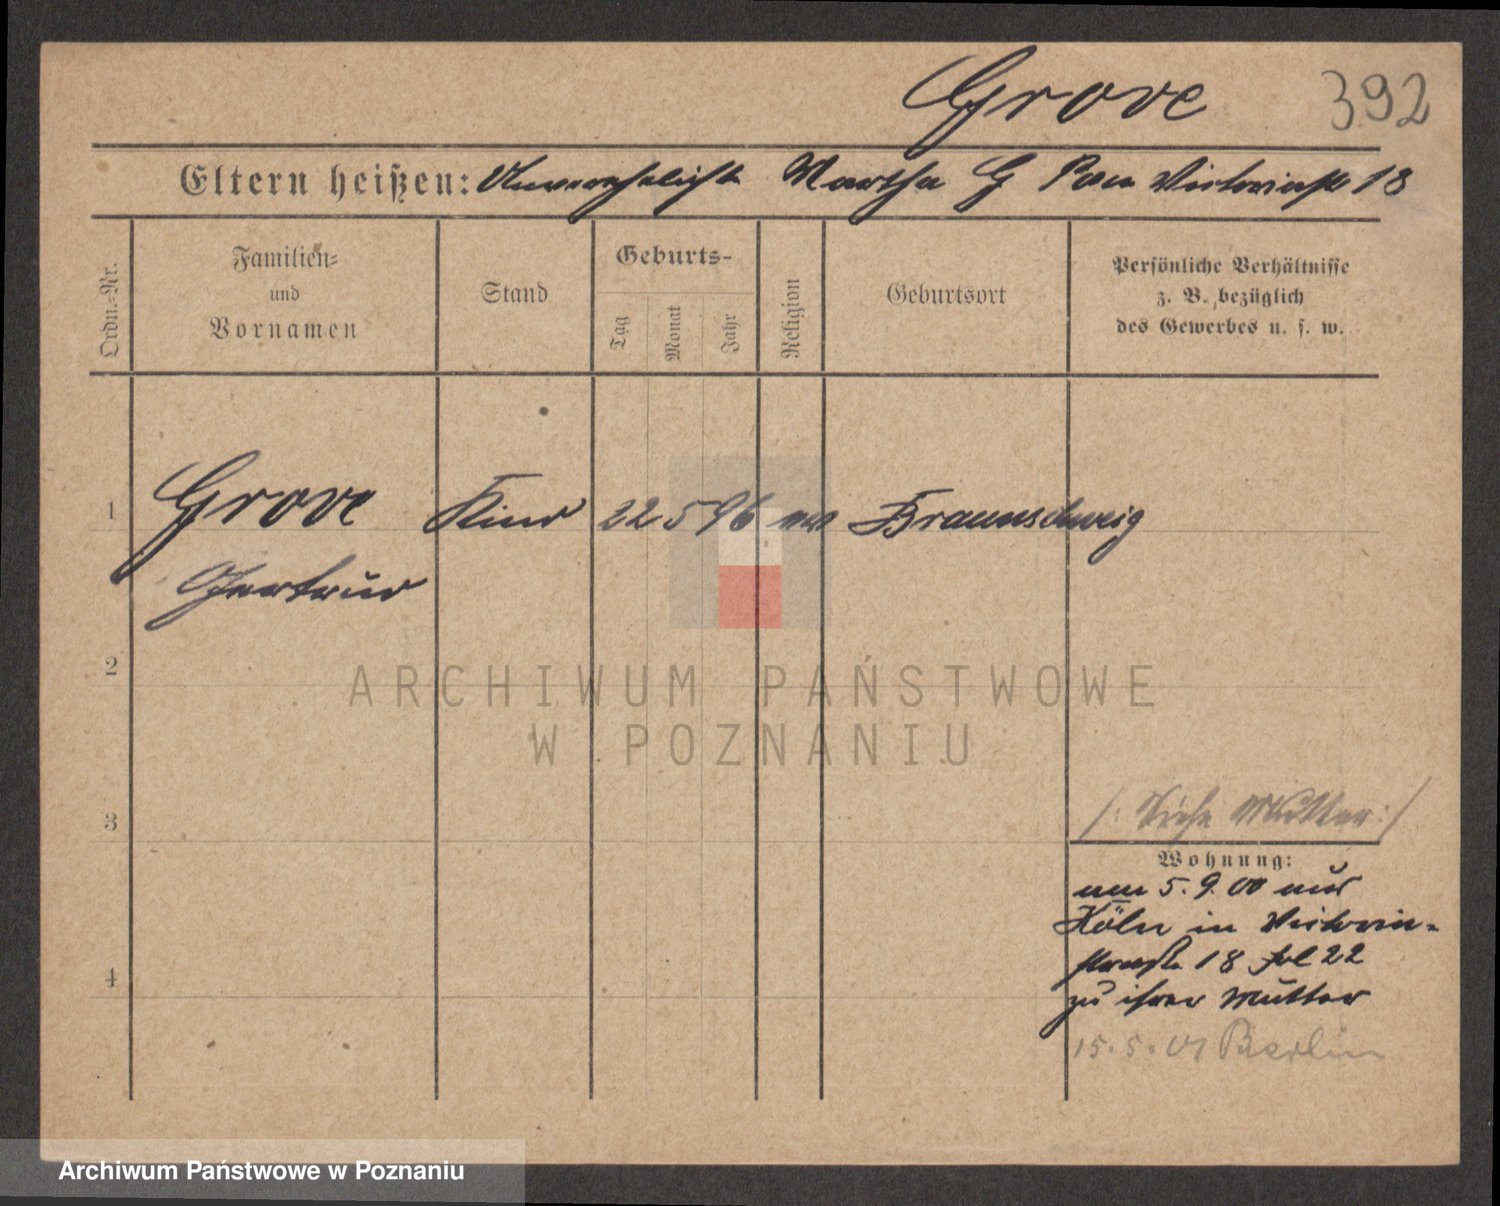 Grove 392
Eltern heißen: Unverehelicht Martha G Victoriastr 18
Ordn.-Nr.
Familien-
und
Vornamen
Stand
Geburts-
Tag
Monat
Jahr
Religion
Geburtsort
Persönliche Verhältnisse
z. B. bezüglich
des Gewerbes u. s. w.
1 Grove Kind 22 5 96 Braunschweig
Gertrud
2
3
4
/: Siehe Mutter :/
Wohnung:
5. 9. 00 aus
Köln in Victoria-
strasse 18 bei 22
zu ihrer Mutter
15. 5. 01 Berlin
ARCHIWUM PAŃSTWOWE
W POZNANIU
Archiwum Państwowe w Poznaniu